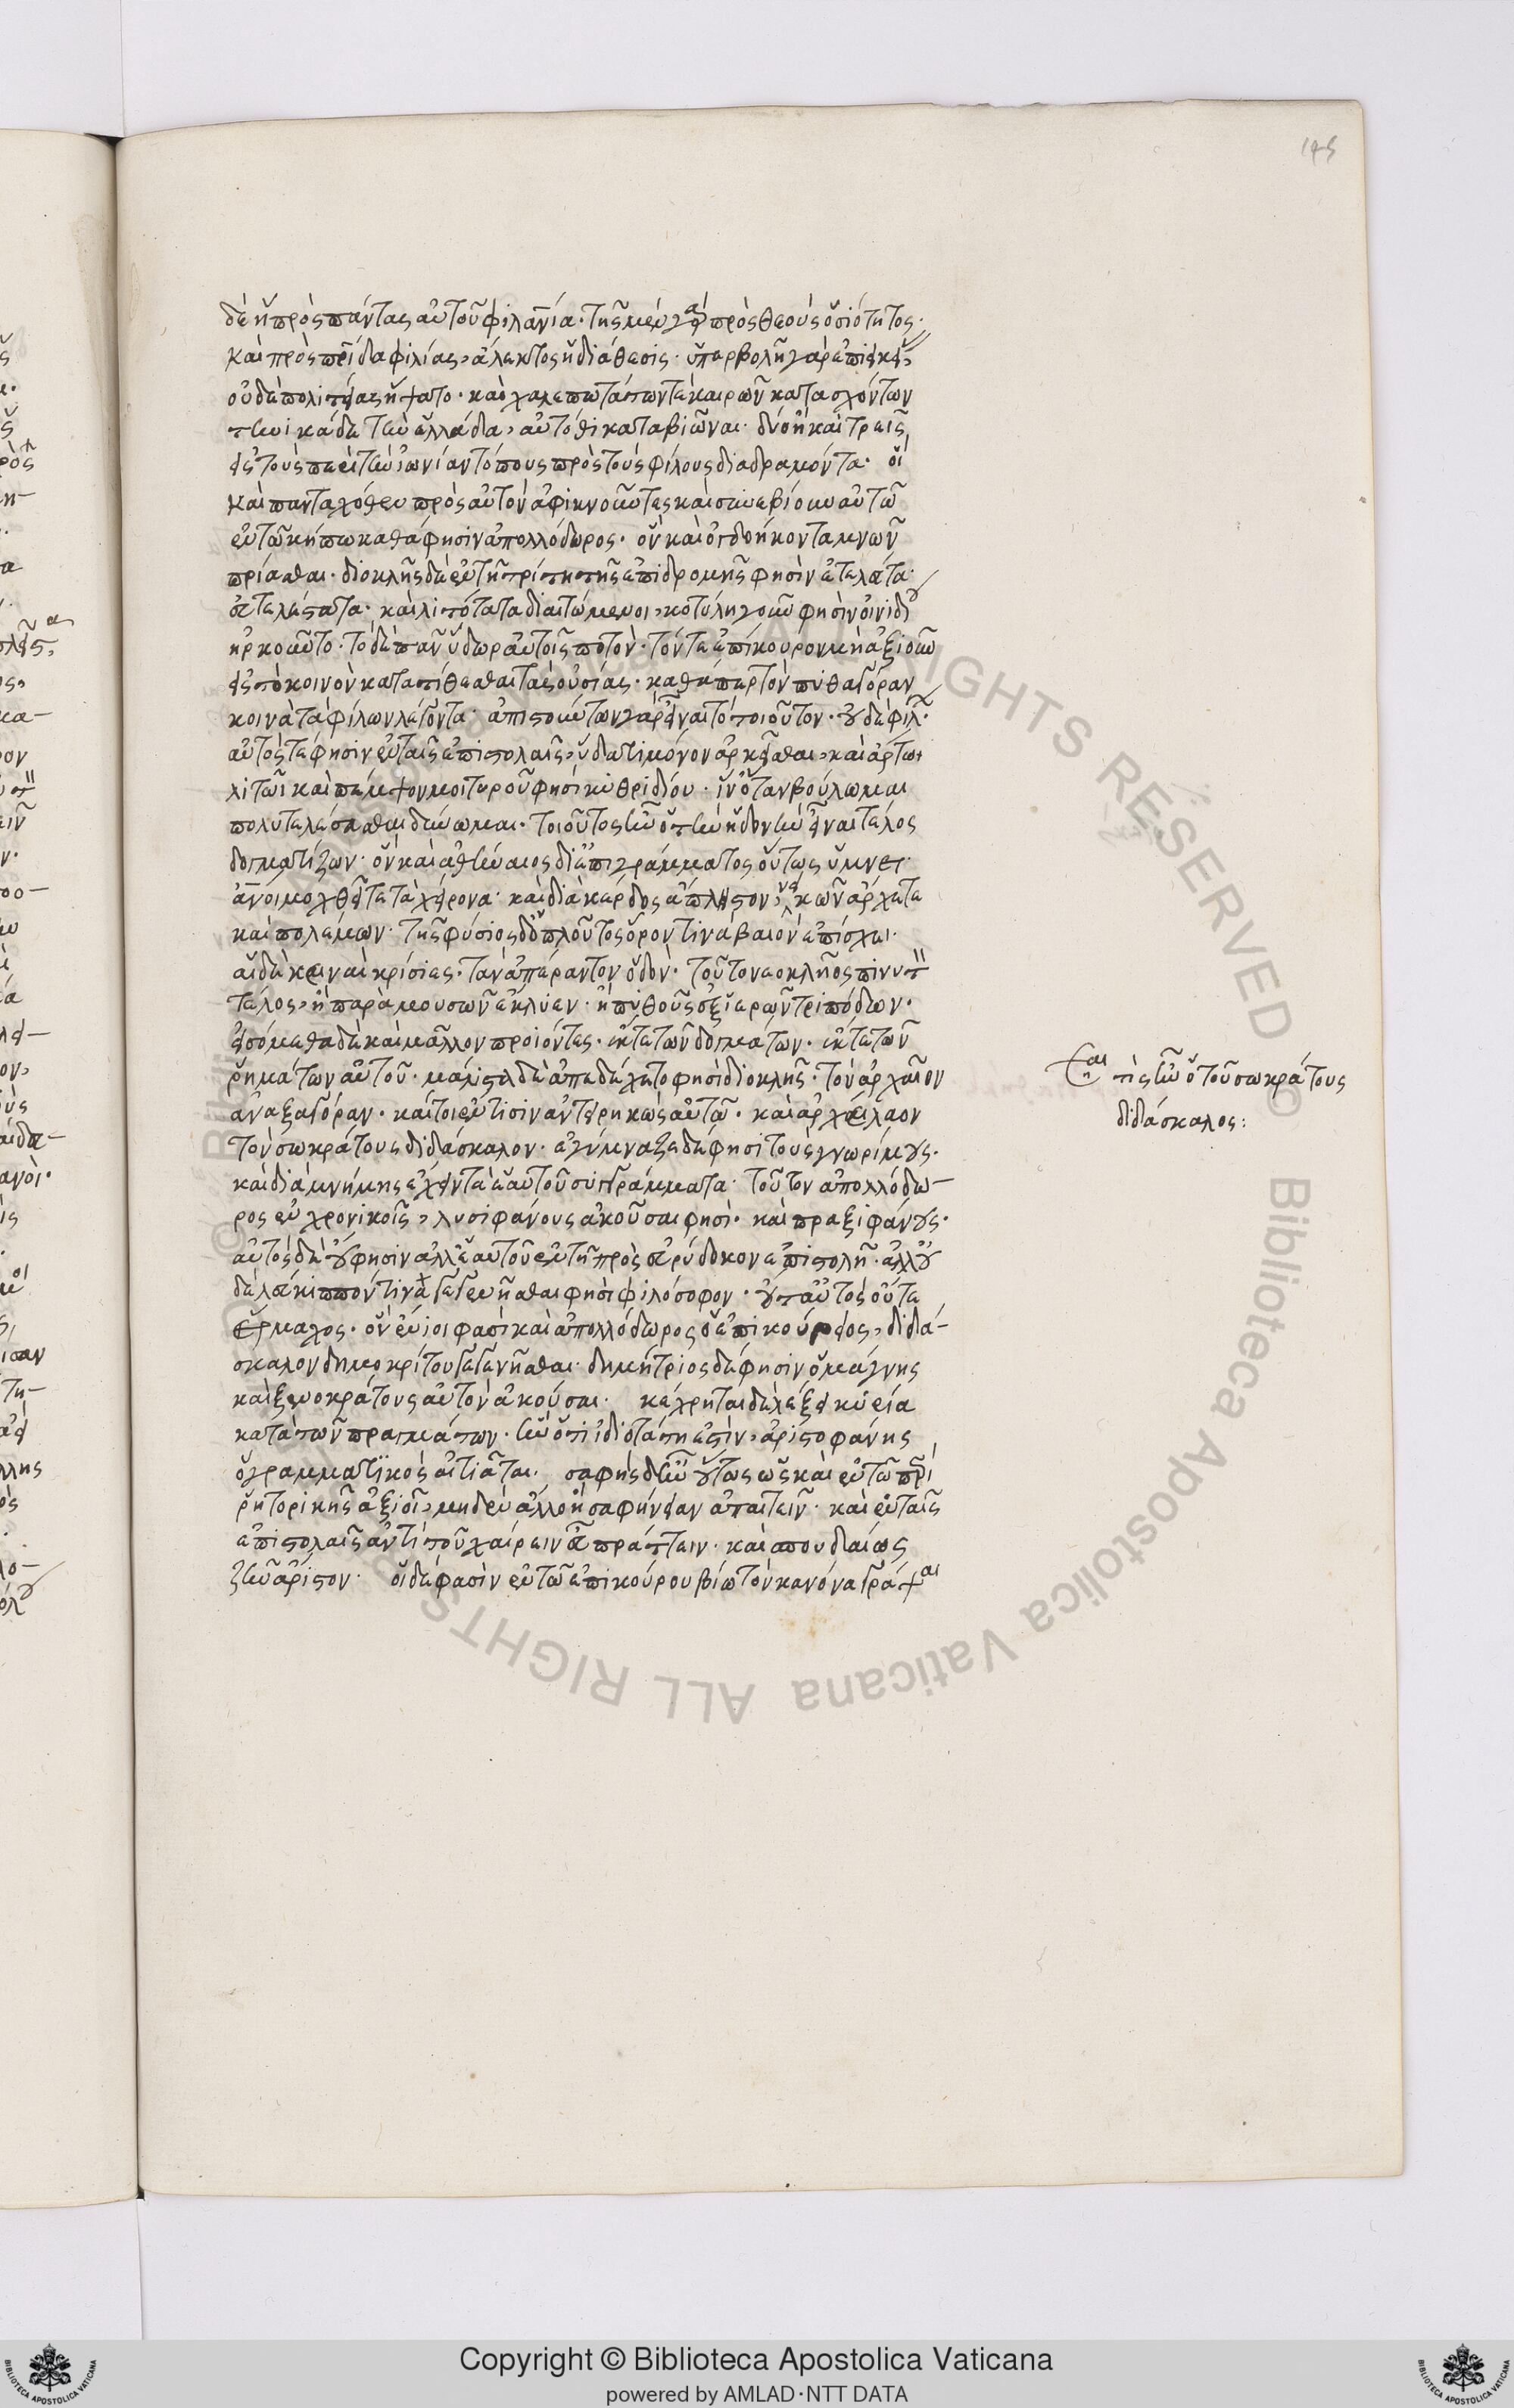 145
δὲ ἡ πρὸς πάντας αὐτοῦ φιλανία· τῆς μὲν γὰρ πρὸς θεοὺς ὁσιότητος·
καὶ πρὸς πρίδα φιλίας, ἄλεκτος ἡ διάθεσις· ὑπερβολῆ γὰρ ἐπιεικεί
οὐδὲ πολιτείας ἥψατο· καὶ χαλεπωτάτων τὲ καιρῶν κατασχόντων
τηνικάδε τὴν ἑλλάδα, αὐτόθι καταβιῶναι· δὶς ἢ καὶ τρεῖς
εἰς τοὺς περὶ τὴν ἰωνίαν τόπους πρὸς τοὺς φίλους διαδραμόντα· οἳ
καὶ πανταχόθεν πρὸς αὐτὸν ἀφικνοῦντες καὶ συνεβίουν αὐτῶ
ἐν τῶ κήπω καθά φησιν ἀπολλόδωρος· ὃν καὶ ὀγδοήκοντα μνῶν
πρίασθαι· διοκλῆς δὲ ἐν τῆ τρίτη τῆς ἐπιδρομῆς φησὶν
εὐτελέστατα· καὶ λιτότατα διαιτώμενοι, κοτύλη γοῦν φησὶν οἰνιδίου
ἠρκοῦντο· τὸ δὲ πᾶν ὕδωρ αὐτοῖς ποτὸν· τόν τε ἐπίκουρον μὴ ἀξιοῦν
εἰς τὸ κοινὸν κατατίθεσθαι τὰς οὐσίας· καθάπερ τὸν πυθαγόραν
κοινὰ τὰ φίλων λέγοντα· ἀπιστούντων γὰρ εἶναι τὸ τοιοῦτον· οὐδὲ φίλ·
αὐτός τέ φησιν ἐν ταῖς ἐπιστολαῖς, ὕδατι μόνον ἀρκεῖσθαι, καὶ ἄρτω
λιτῶ καὶ πέμψον μοι τυροῦ φησί κυθριδίου· ἵν' ὅταν βούλωμαι
πολυτελέσασθαι δύνωμαι· τοιοῦτος ἦν ὁ τὴν ἡδονὴν εἶναι τέλος
δογματίζων· ὃν καὶ ἀθήναιος δι' ἐπιγράμματος οὕτως ὑμνεῖ·
ἄνοι μοχθεῖτε τὰ χείρονα· καὶ διὰ κέρδος ἄπληστον, νεικῶν ἄρχετε
καὶ πολέμων· τῆς φύσιος δ' ὁ πλοῦτος ὅρον τινὰ βαιὸν ἐπίσχει·
αἱ δὲ κεναὶ κρίσιες· τὰν ἀπέραντον ὁδὸν· τοῦτο νεοκλῆος πινυτ
τέκος, ἢ παρὰ μουσῶν ἔκλυεν· ἢ πυθοῦς ἐξ ἱερῶν τριπόδων·
εἰσόμεθα δὲ καὶ μᾶλλον προϊόντες· ἔκ τε τῶν δογμάτων· ἔκ τε τῶν
ῥημάτων αὐτοῦ· μάλιστα δὲ ἀπεδέχετο φησὶ διοκλῆς· τὸν ἀρχαῖον
ἀναξαγόραν· καίτοι ἔν τισιν ἀντειρηκὼς αὐτῶ· καὶ ἀρχέλαον
τὸν σωκράτους διδάσκαλον· ἐγύμναζε δέ φησι τοὺς γνωρίμους·
καὶ διὰ μνήμης ἔχειν τὰ ἑαυτοῦ συγγράμματα· τοῦτον ἀπολλόδω-
ρος ἐν χρονικοῖς, λυσιφάνους ἀκοῦσαι φησὶ· καὶ πραξιφάνους·
αὐτὸς δὲ οὔ φησιν ἀλλ' ἑαυτοῦ ἐν τῆ πρὸς εὐρύδοκον ἐπιστολῆ· ἀλλ' οὐ
δὲ λεύκιππόν τινα γεγενῆσθαι φησὶ φιλόσοφον· οὔτ' αὐτὸς οὔτε
ἕρμαχος· ὃν ἔνιοι φασὶ καὶ ἀπολλόδωρος ὁ ἐπικούρειος, διδά-
σκαλον δημοκρίτου γεγενῆσθαι· δημήτριος δέ φησιν ὁ μάγνης
καὶ ξενοκράτους αὐτὸν ἀκοῦσαι· κέχρηται δὲ λέξει κυρία
κατὰ τῶν πραγμάτων· ἣν ὅτι ἰδιοτάτη ἐστὶν, ἀριστοφάνης
ὁ γραμματικὸς αἰτιᾶται· σαφὴς δ' ἦν οὕτως ὡς καὶ ἐν τῶ περὶ
ῥητορικῆς ἀξιοῖ, μηδὲν ἄλλο ἢ σαφήνειαν ἀπαιτεῖν· καὶ ἐν ταῖς
ἐπιστολαῖς ἀντὶ τοῦ χαίρειν εὖ πράττειν· καὶ σπουδαίως
ζῆν ἄριστον· οἱ δέ φασιν ἐν τῶ ἐπικούρου βίω τὸν κανόνα γράψαι
τίς ἦν ὁ τοῦ σωκράτους
διδάσκαλος:
Copyright © Biblioteca Apostolica Vaticana
powered by AMLAD·NTT DATA